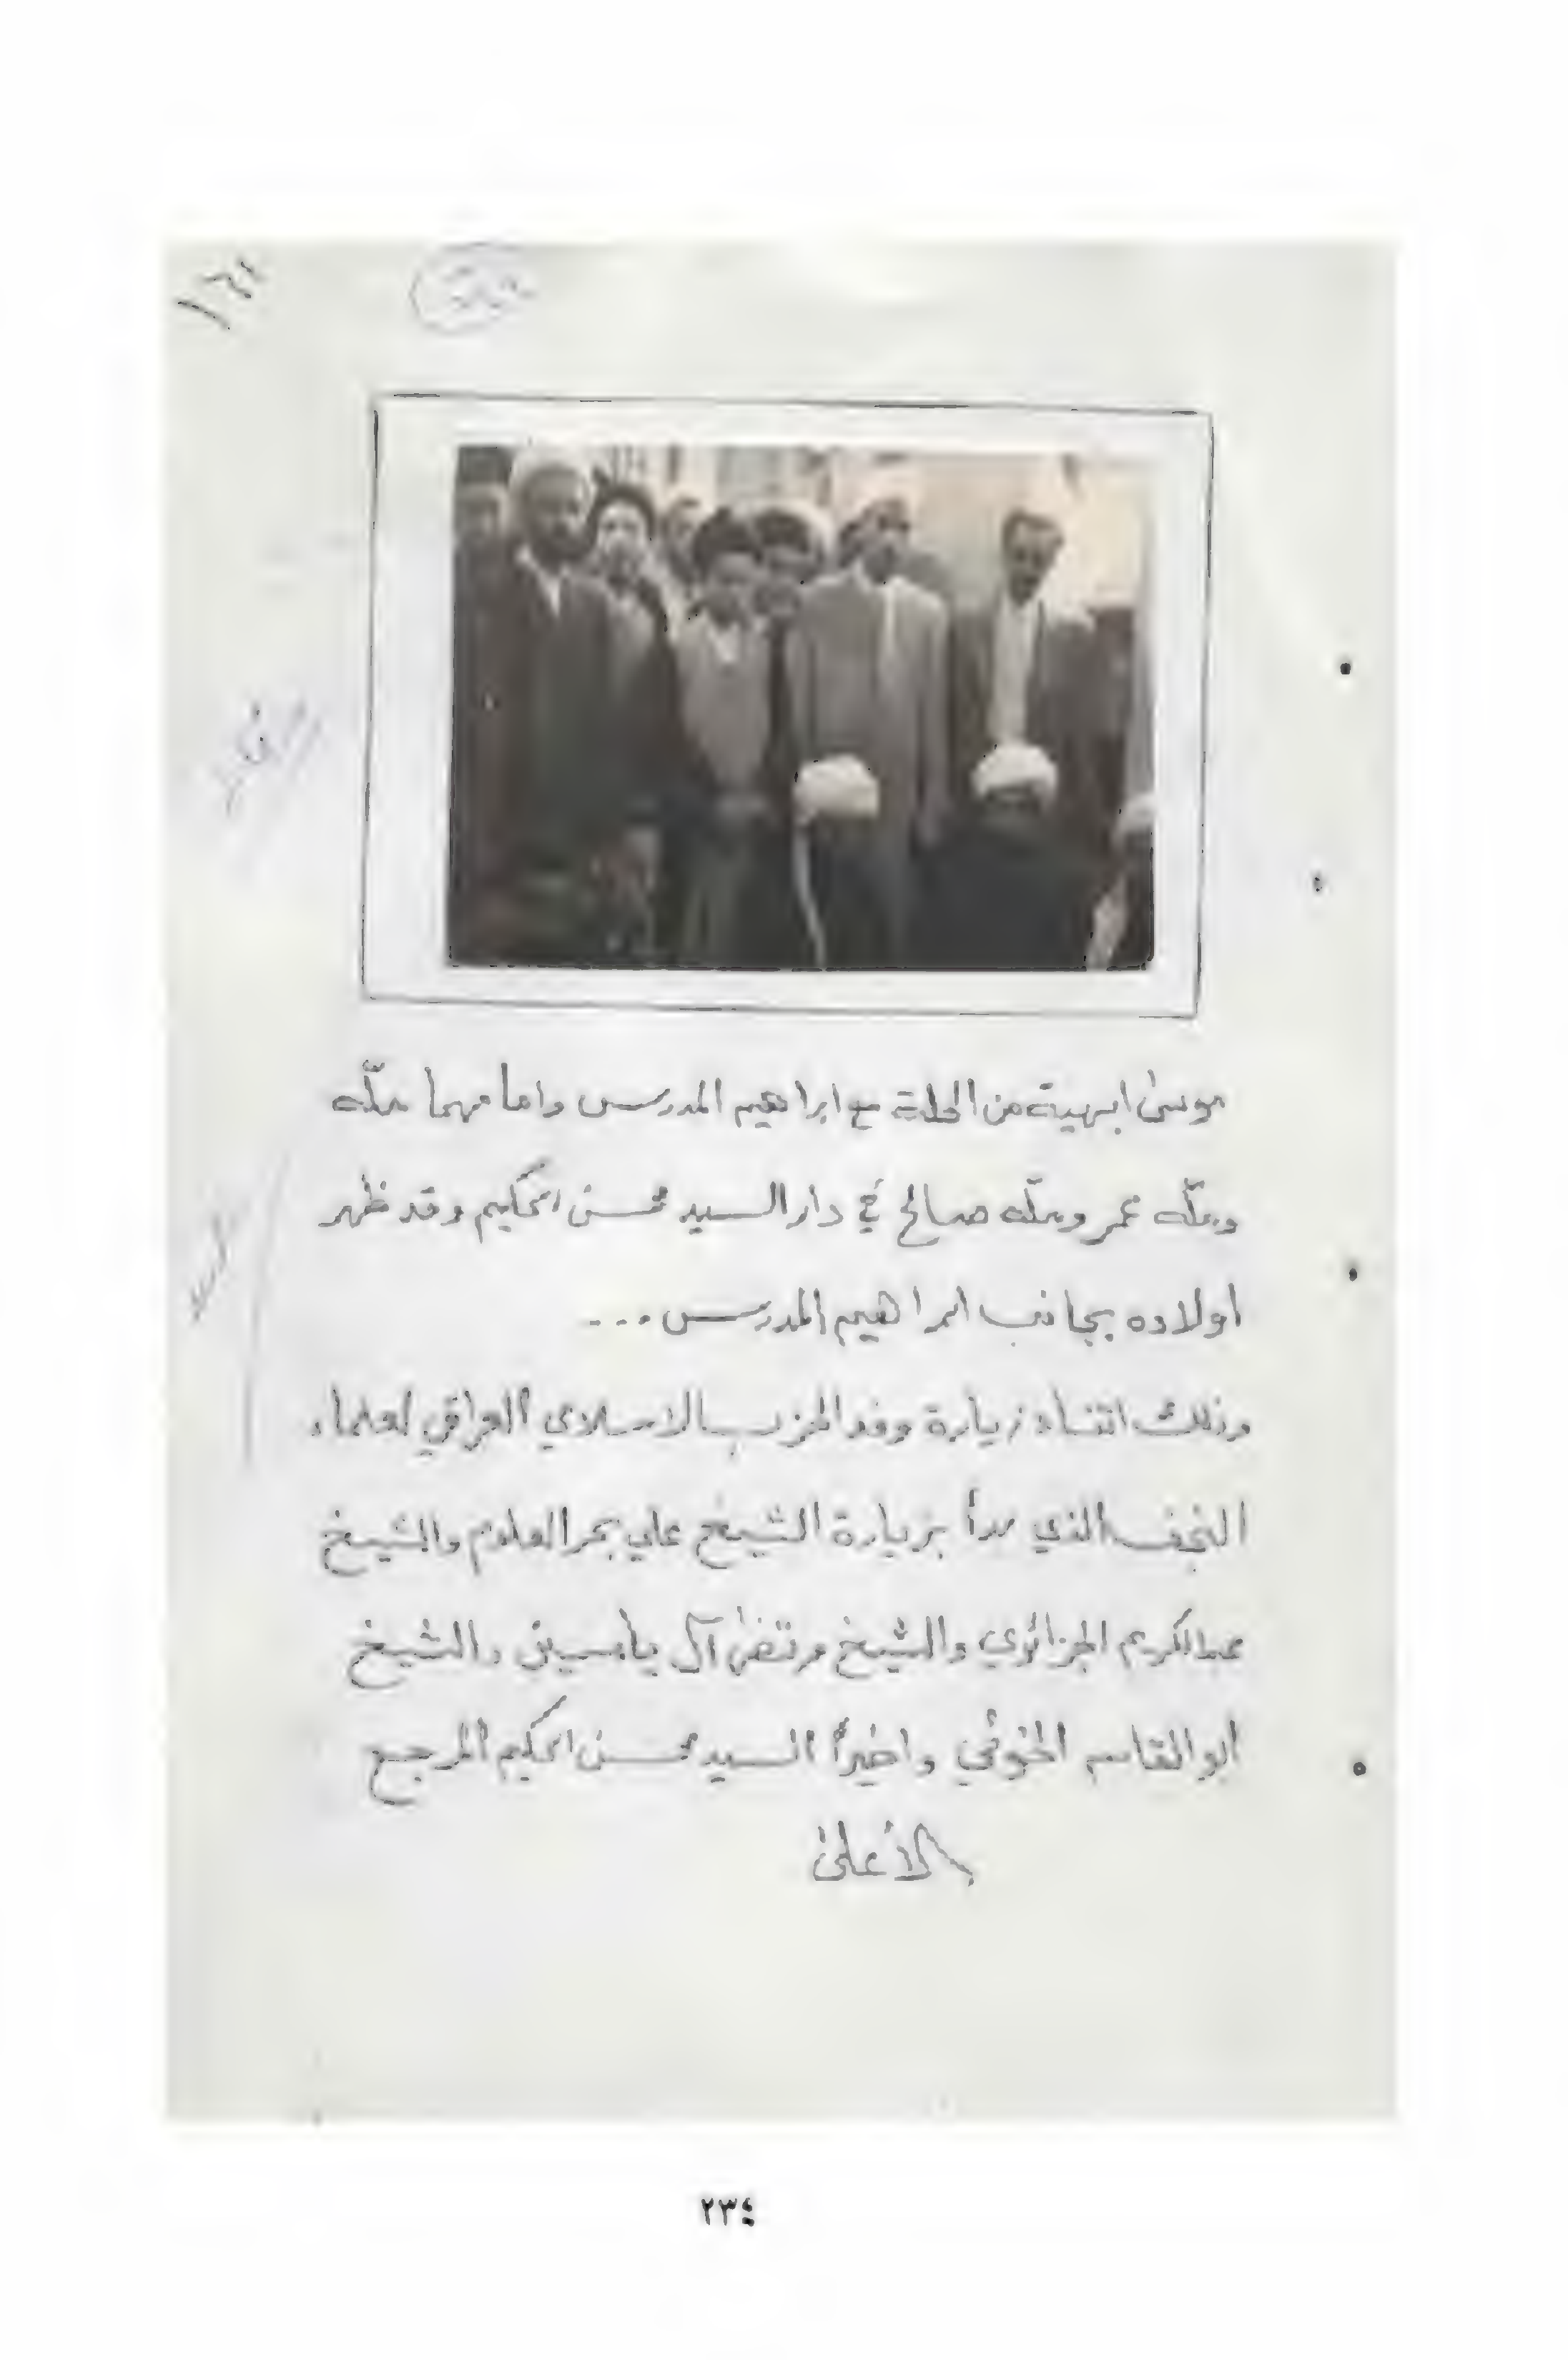 موسى ابهية من الحلة مع ابراهيم المدرس وامامهما ملّه
وملّه عمر وملّه صالح في دار السيد محسن الحكيم وقد ظهر
اولاده بجانب ابراهيم المدرس...
وذلك اثناء زيارة وفد الحزب الاسلامي العراقي لعلماء
النجف الذي بدأ بزيارة الشيخ علي بحر العلوم والشيخ
عبدالكريم الجزائري والشيخ مرتضى آل ياسين والشيخ
ابو القاسم الخوئي واخيراً السيد محسن الحكيم المرجع
الأعلى
٢٣٤